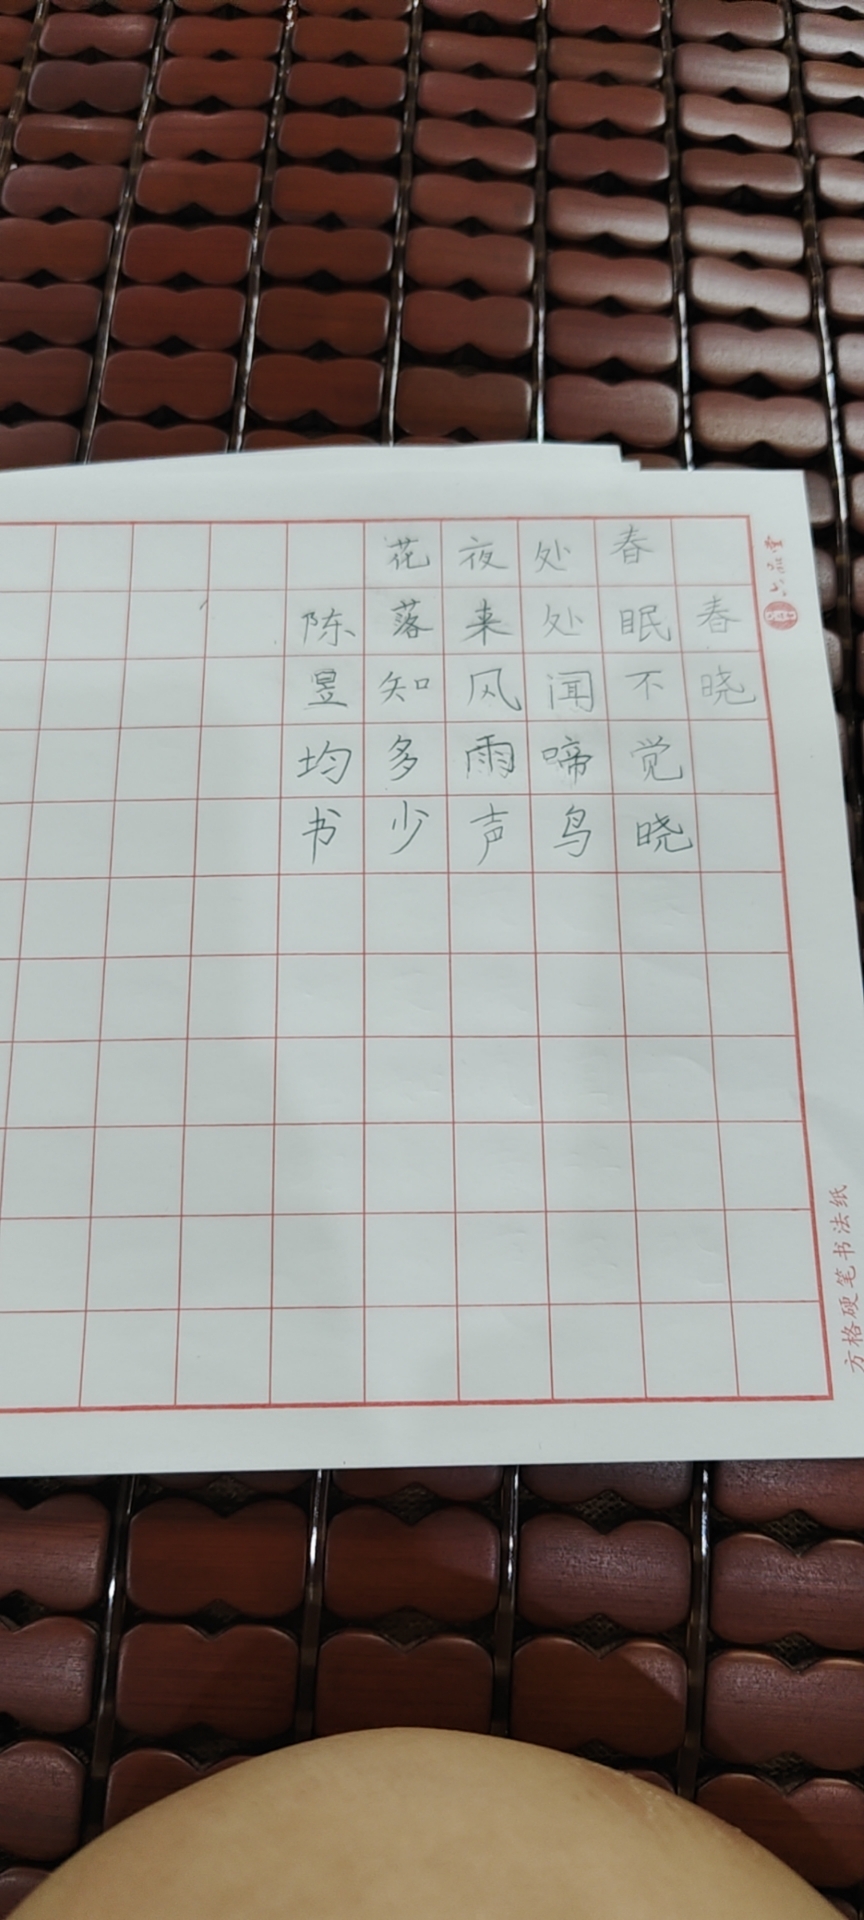 春晓
春眠不觉晓
处处闻啼鸟
夜来风雨声
花落知多少
陈昱均书
六品堂
方格硬笔书法纸